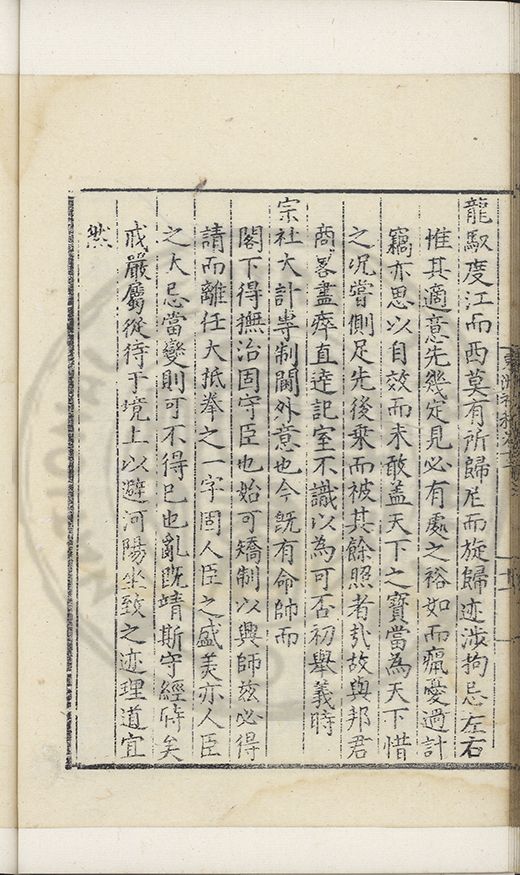 龍馭度江而西莫有所歸尼而旋歸迹涉拘忌左右
惟其適意先幾定見必有處之裕如而癙憂過計
竊亦思以自效而未敢盖天下之寶當為天下惜
之況嘗側足先後乗而被其餘照者㢤故與邦君
商畧盡瘁直逹記室不識以為可否初舉義時
宗社大計專制閫外意也今既有命帥而
閣下得撫治固守臣也始可矯制以興師兹必得
請而離任大抵拳之一字固人臣之盛羙亦人臣
之大忌當變則可不得已也亂既靖斯守經時矣
戒嚴屬從待于境上以避河陽坐致之迹理道宜
然